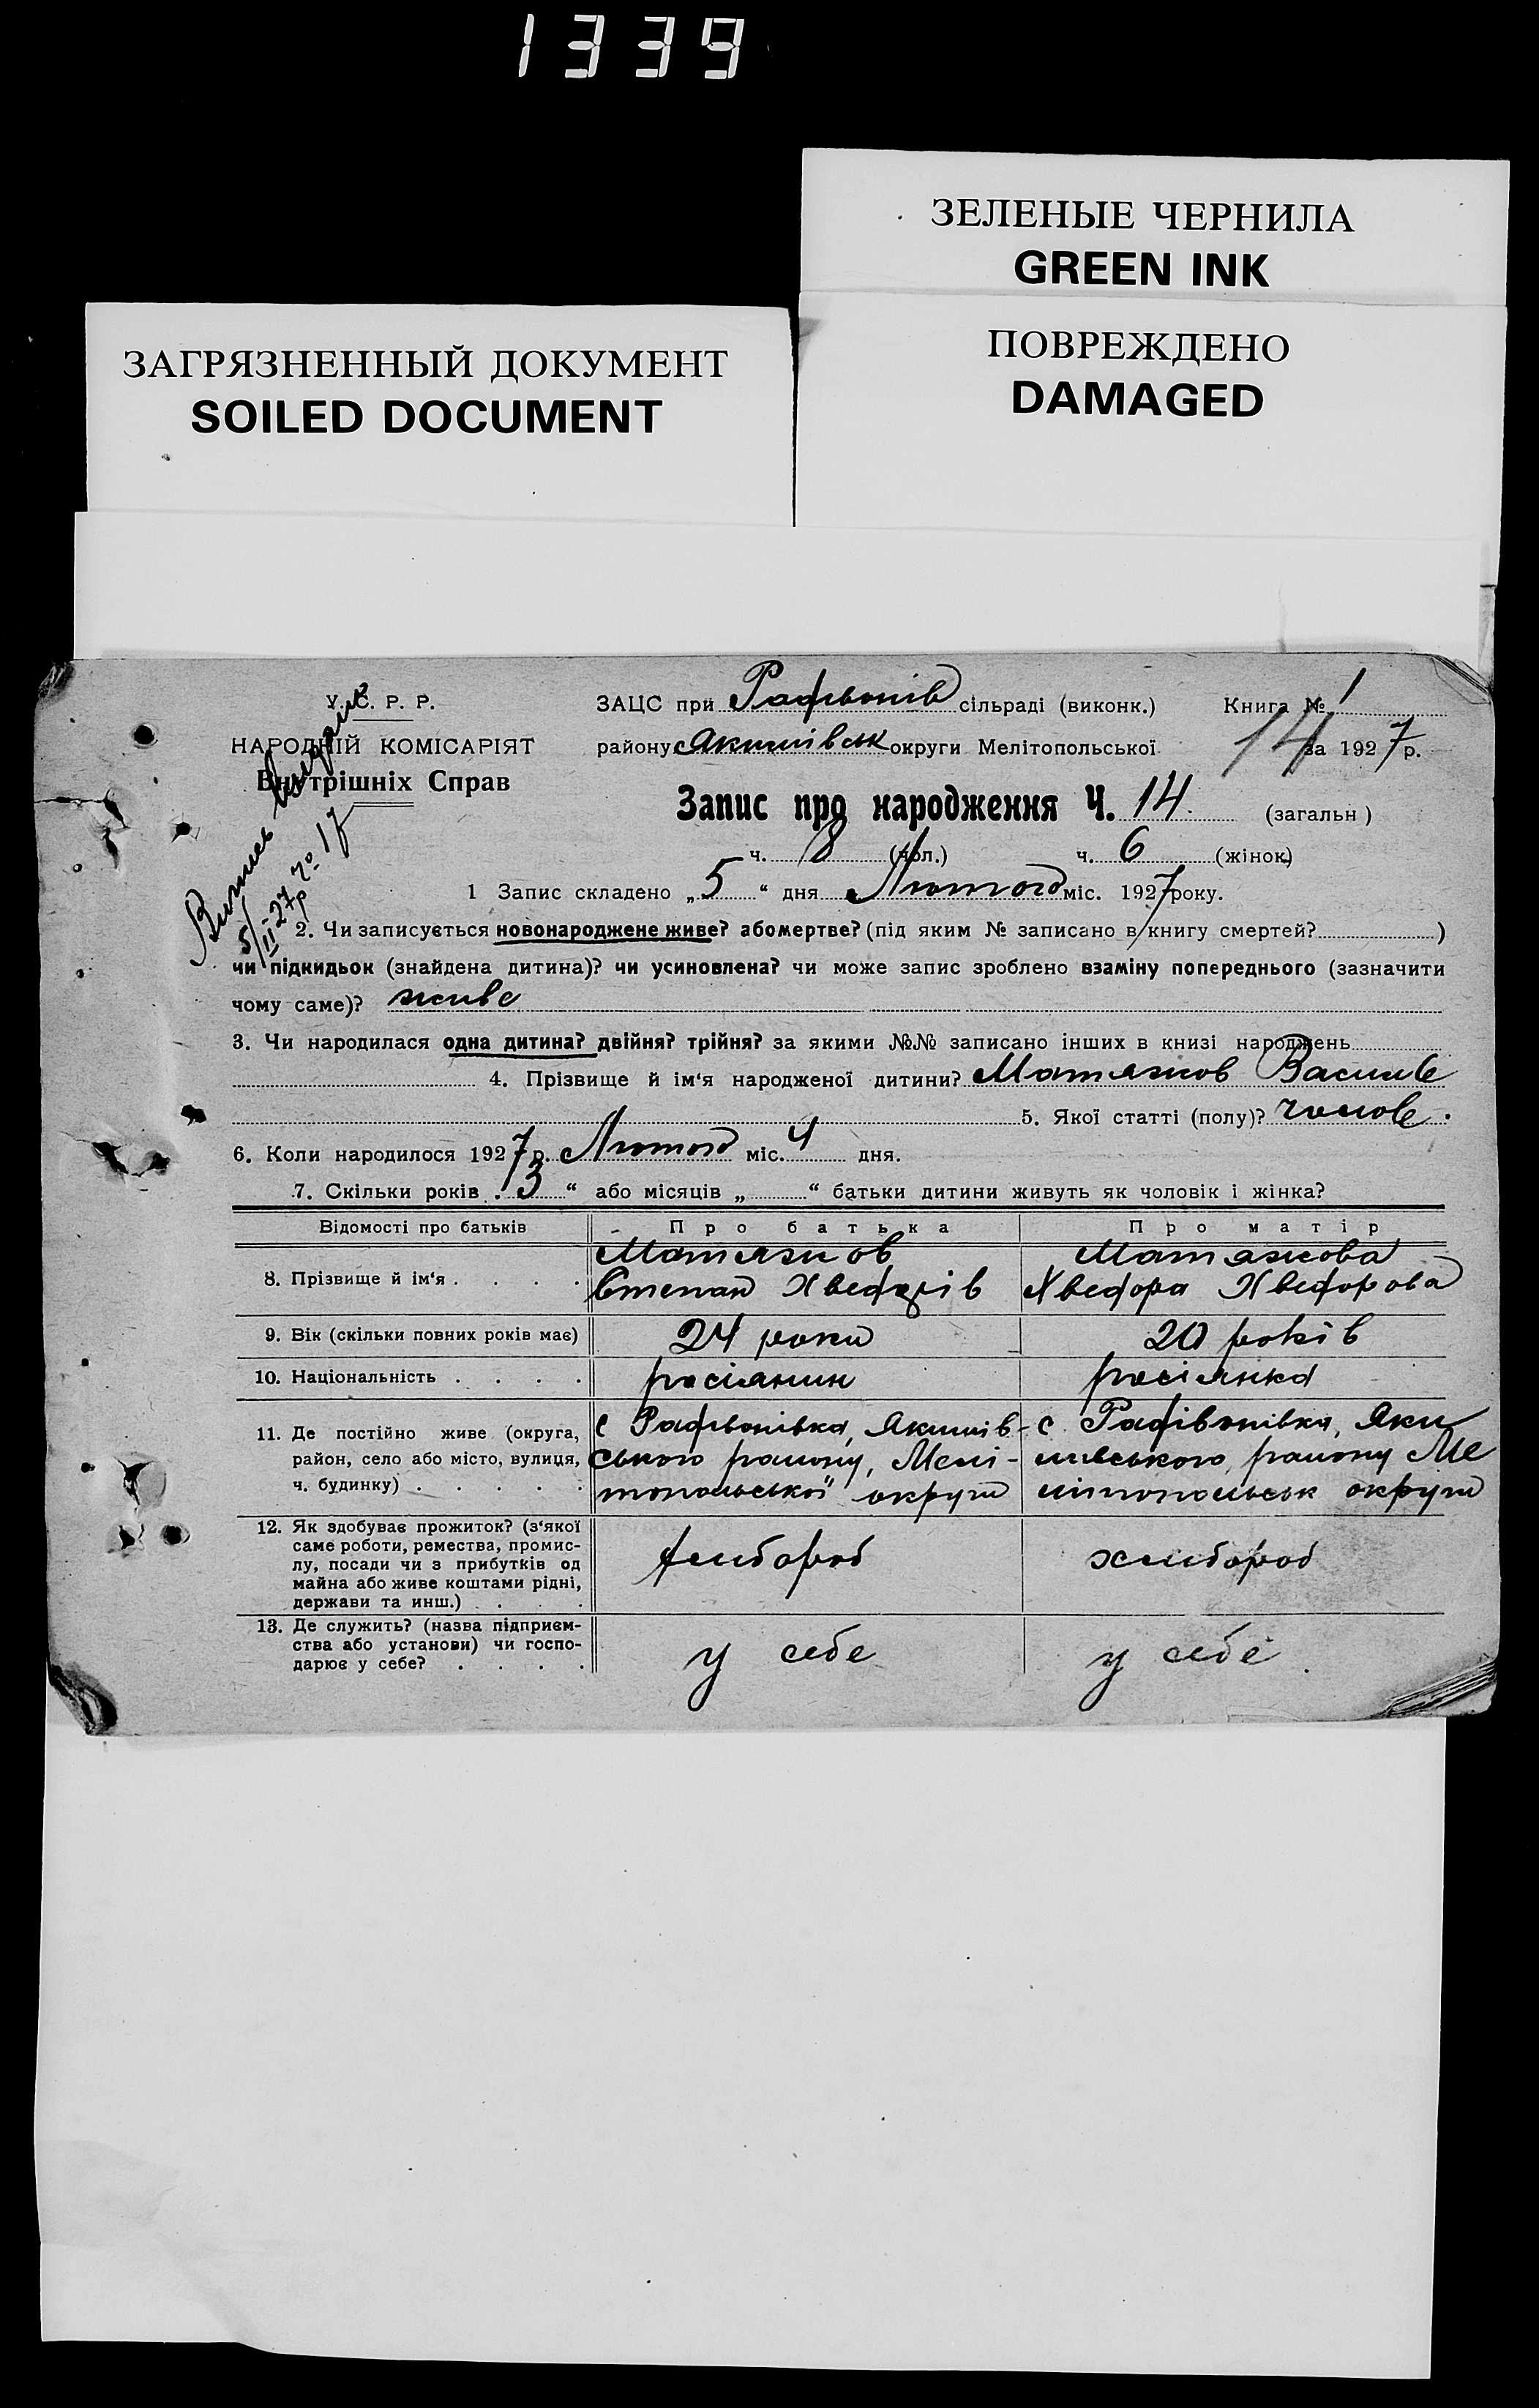 1339
ЗЕЛЕНЫЕ ЧЕРНИЛА
GREEN INK
ЗАГРЯЗНЕННЫЙ ДОКУМЕНТ
SOILED DOCUMENT
ПОВРЕЖДЕНО
DAMAGED
У. С. Р. Р.
НАРОДНІЙ КОМІСАРІЯТ
Внутрішніх Справ
Випись видана
5/II-27 р
№ 17
ЗАЦС при сільраді (виконк.) Книга № 1
району Якимівськ округи Мелітопольської 14 за 1927 р.
Запис про народження Ч. 14 (загальн)
ч. 8 (чол.) ч. 6 (жінок)
1 Запис складено „5“ дня Лютого міс. 1927 року.
2. Чи записується новонароджене живе? або мертве? (під яким № записано в книгу смертей? )
чи підкидьок (знайдена дитина)? чи усиновлена? чи може запис зроблено взаміну попереднього (зазначити
чому саме)? живе
3. Чи народилася одна дитина? двійня? трійня? за якими №№ записано інших в книзі народжень
4. Прізвище й ім‘я народженої дитини? Матяжов Василь
5. Якої статті (полу)? чолов.
6. Коли народилося 1927 р. Лютого міс. 4 дня.
7. Скільки років „3“ або місяців „ “ батьки дитини живуть як чоловік і жінка?
Відомості про батьків Про батька Про матір
8. Прізвище й ім‘я . . . . Матяжов Матяжова
Степан Хведорів Хведора Хведорова
9. Вік (скільки повних років має) 24 роки 20 років
10. Національність . . . . росіянин росіянка
11. Де постійно живе (округа, с Якимів- с Яки
район, село або місто, вулиця, ського району, Мелі- мивського району Ме
ч. будинку) . . . . . топольської округи літопольськ округи
12. Як здобуває прожиток? (з‘якої
саме роботи, ремества, промис-
лу, посади чи з прибутків од хлибороб хлибороб
майна або живе коштами рідні,
держави та инш.) . . .
13. Де служить? (назва підприєм-
ства або установи) чи госпо- у себе у себе
дарює у себе? . . . .